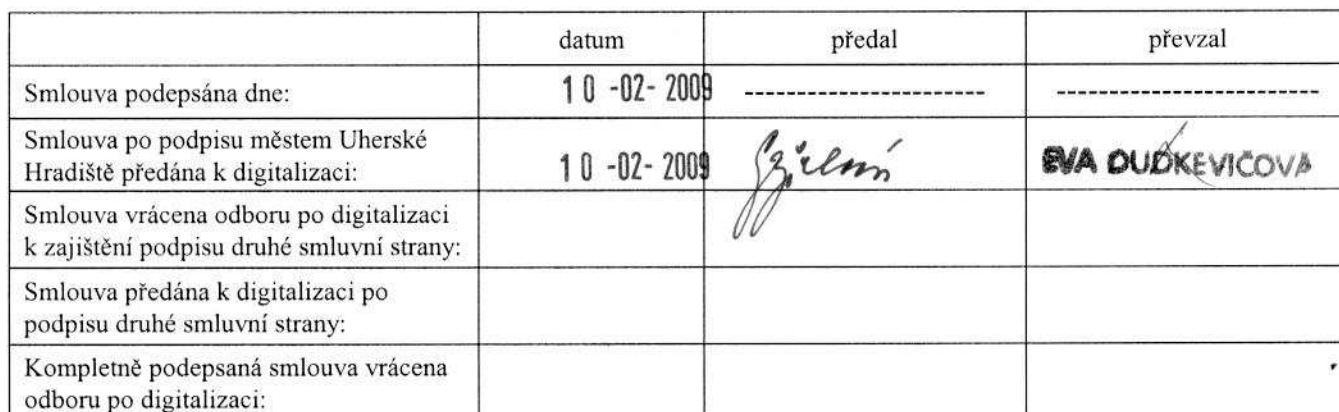 datum předal převzal
Smlouva podepsána dne: 10 -02- 2009 ---------------------- ------------------------
Smlouva po podpisu městem Uherské
Hradiště předána k digitalizaci: 10 -02- 2009 EVA DUDKEVIČOVA
Smlouva vrácena odboru po digitalizaci
k zajištění podpisu druhé smluvní strany:
Smlouva předána k digitalizaci po
podpisu druhé smluvní strany:
Kompletně podepsaná smlouva vrácena
odboru po digitalizaci: